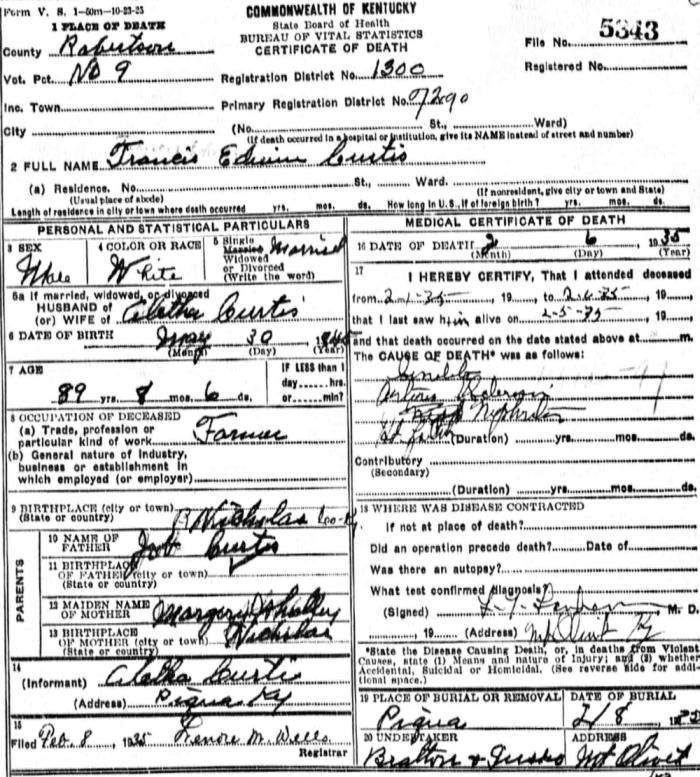 Form V. S. 1-50m-10-23-25
COMMONWEALTH OF KENTUCKY
State Board of Health
BUREAU OF VITAL STATISTICS
CERTIFICATE OF DEATH
1 PLACE OF DEATH
County Robertson
File No. 5343
Vot. Pct. No 9
Registration District No. 1300
Registered No.
Inc. Town
Primary Registration District No. 7290
City (No. St., Ward)
(If death occurred in a hospital or institution, give its NAME instead of street and number)
2 FULL NAME Francis Edwin Curtis
(a) Residence. No. St., Ward.
(Usual place of abode) (If nonresident, give city or town and State)
Length of residence in city or town where death occurred yrs. mos. ds. How long in U.S., if of foreign birth? yrs. mos. ds.
PERSONAL AND STATISTICAL PARTICULARS
3 SEX Male
4 COLOR OR RACE White
5 Single Married Widowed or Divorced (Write the word) Married
5a If married, widowed, or divorced
HUSBAND of
(or) WIFE of Aletha Curtis
6 DATE OF BIRTH May 30
(Month) (Day) (Year)
7 AGE 89 yrs. 8 mos. 6 ds.
IF LESS than 1
day hrs.
or min?
8 OCCUPATION OF DECEASED
(a) Trade, profession or
particular kind of work Farmer
(b) General nature of Industry,
business or establishment in
which employed (or employer)
9 BIRTHPLACE (city or town)
(State or country) Nicholas Co-Ky.
PARENTS
10 NAME OF
FATHER Curtis
11 BIRTHPLACE
OF FATHER (city or town)
(State or country)
12 MAIDEN NAME
OF MOTHER
13 BIRTHPLACE
OF MOTHER (city or town) Nicholas
(State or country)
14
(Informant) Aletha Curtis
(Address) Piqua Ky
15
Filed Feb. 8, 1935 Lenore M. Wells
Registrar
MEDICAL CERTIFICATE OF DEATH
16 DATE OF DEATH 2 6 1935
(Month) (Day) (Year)
17
I HEREBY CERTIFY, That I attended deceased
from 2-1-35, 19 to 2-6-35, 19
that I last saw him alive on 2-5-35, 19
and that death occurred on the date stated above at m.
The CAUSE OF DEATH* was as follows:
(Duration) yrs. mos. ds.
Contributory
(Secondary)
(Duration) yrs. mos. ds.
18 WHERE WAS DISEASE CONTRACTED
If not at place of death?
Did an operation precede death? Date of
Was there an autopsy?
What test confirmed diagnosis?
(Signed) M. D.
, 19 (Address) Mt Olivet Ky
*State the Disease Causing Death, or, in deaths from Violent
Causes, state (1) Means and nature of Injury; and (2) whether
Accidental, Suicidal or Homicidal. (See reverse side for addi-
tional space.)
19 PLACE OF BURIAL OR REMOVAL Piqua
DATE OF BURIAL 2/8
20 UNDERTAKER Bratton &
ADDRESS Mt Olivet